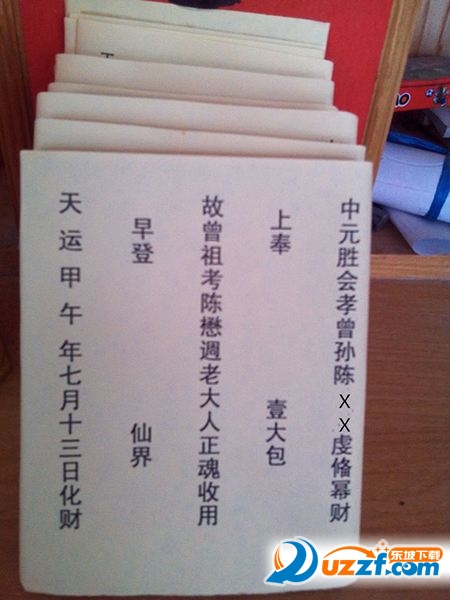 中元胜会孝曾孙陈XX虔脩冪财
上奉 壹大包
故曾祖考陈懋週老大人正魂收用
早登 仙界
天运甲午年七月十三日化财
乐坡下载
UZZF.com